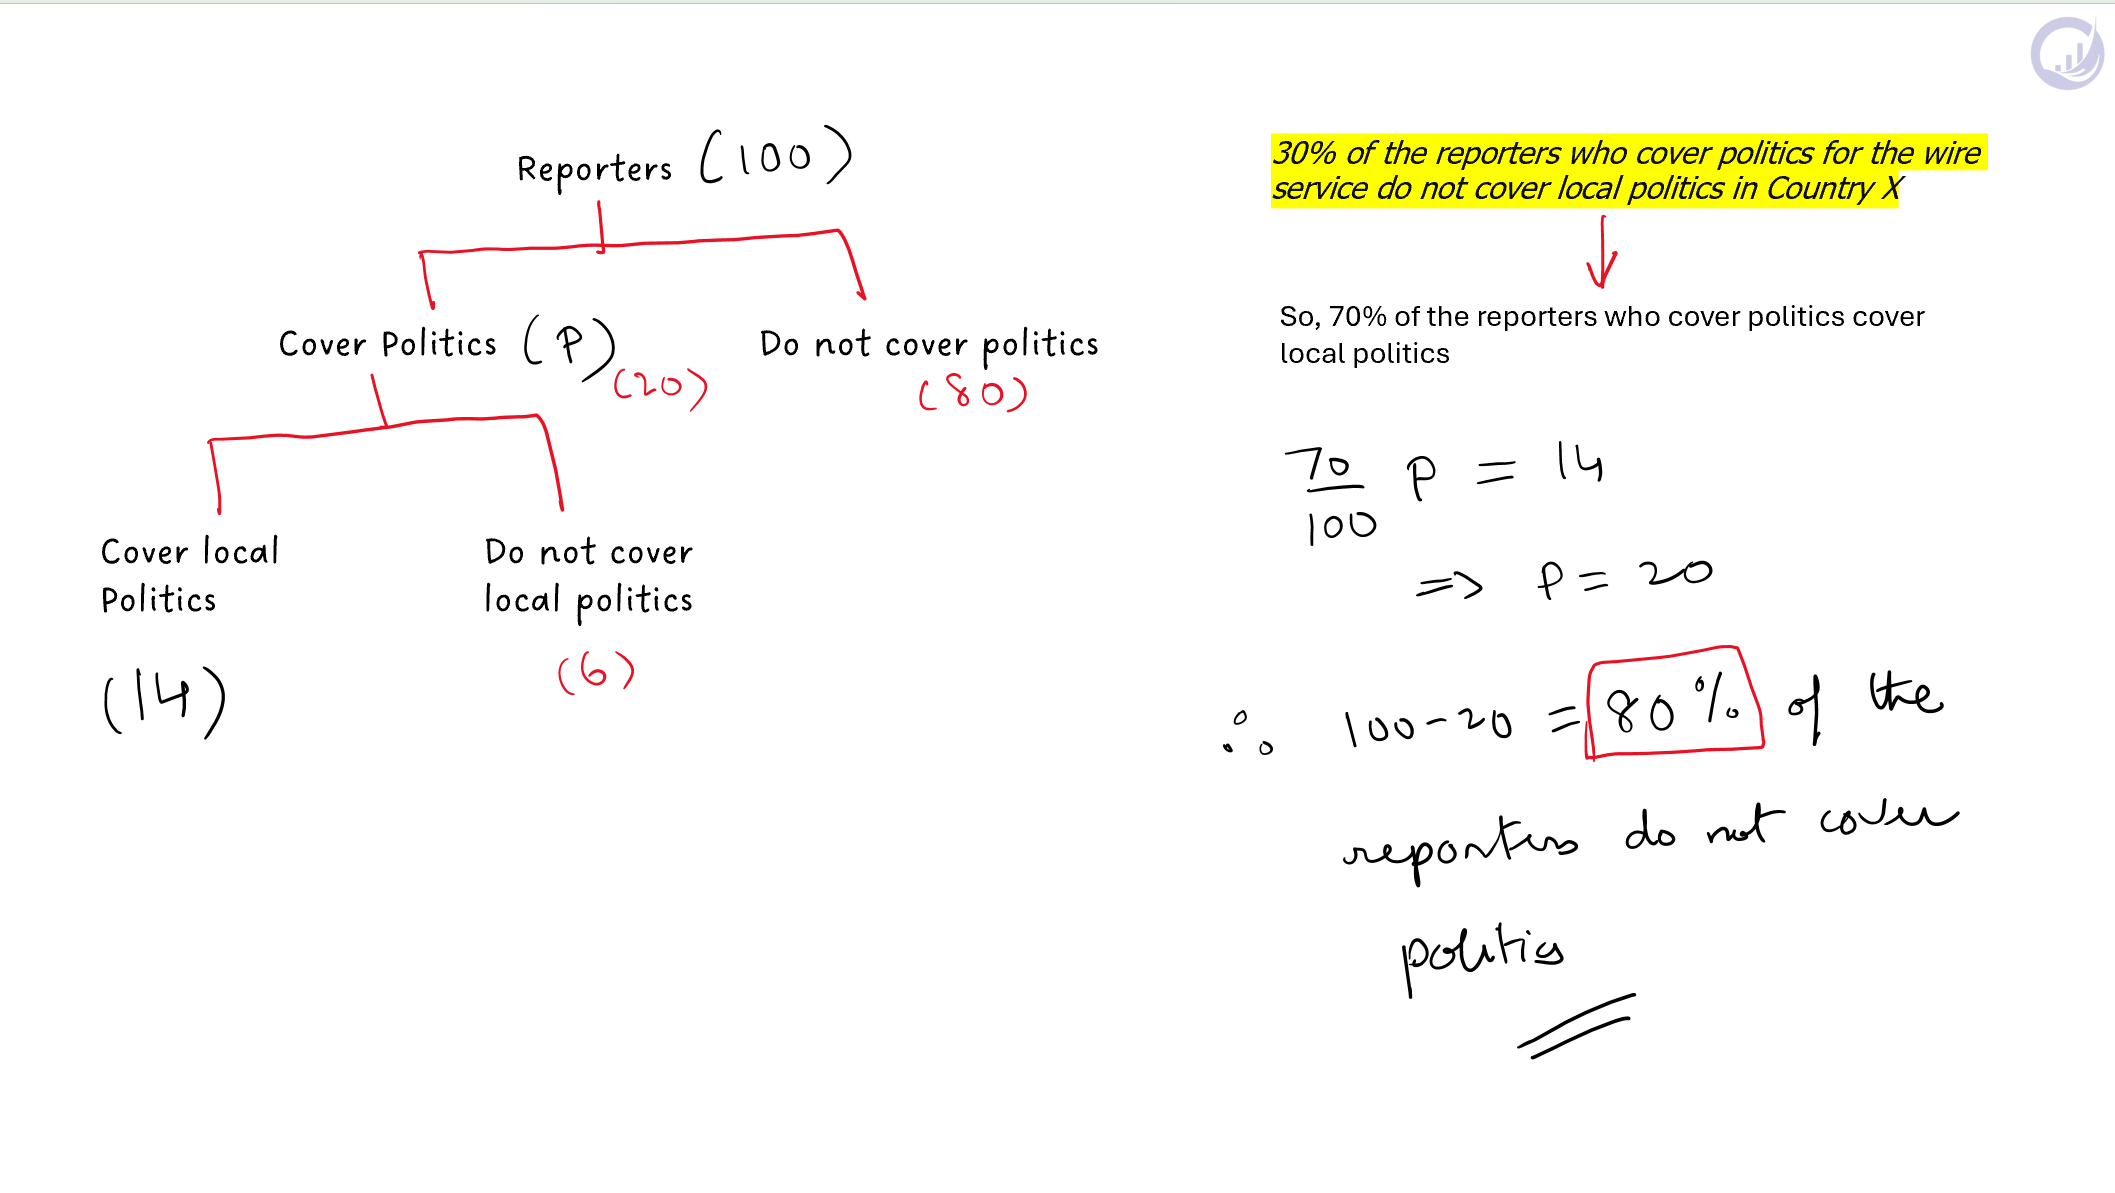 Reporters (100)
Cover Politics (P)
(20)
Do not cover politics
(80)
Cover local
Politics
(14)
Do not cover
local politics
(6)
30% of the reporters who cover politics for the wire
service do not cover local politics in Country X
So, 70% of the reporters who cover politics cover
local politics
70/100 P = 14
=> P = 20
∴ 100-20 = 80% of the
reporters do not cover
politics